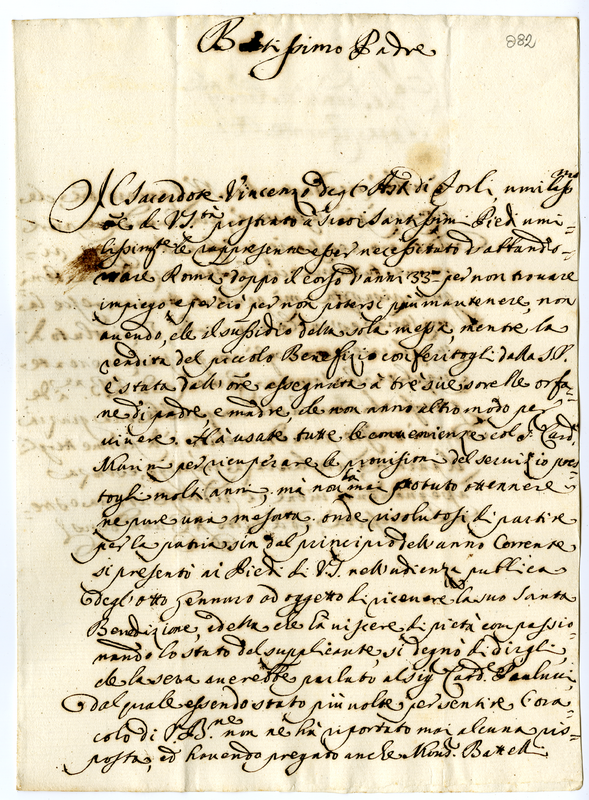 882
Beatissimo Padre
Il Sacerdote Vincenzo degl'Asti di Forlì, umiliss.mo
Ore di V. S.tà prostrato a' Suoi Santissimi Piedi umi=
lissim.te le rappresenta esser necessitato d'abbando=
nare Roma doppo il corso d'anni 33 per non trovare
impiego e perciò per non potersi più mantenere, non
avendo, che il sussidio della sola messa, mentre la
rendita del piccolo Benefizio conferitogli dalla S.V.
è stata dall'Ore assegnata à trè sue sorelle orfa=
ne di padre e madre, che non anno altro modo per
vivere. Hà usate tutte le convenienze col S. Card.
Marini per ricuperare le provisioni del servizio pres=
togli molti anni, mà non hà mai potuto ottennere
ne pure una mesata, onde risolutosi di partire
per la patria sin dal principio dell'anno Corrente
si presentò ai Piedi di V.S. nell'udienza publica
degl'otto Gennaro ad oggetto di ricevere la sua Santa
Benedizione, ed ella che hà viscere di pietà compassio=
nando lo stato del supplicante, si degnò di dirgli,
che la sera averebbe parlato al Sig. Card. Paulucci,
dal quale essendo stato più volte per sentire l'ora=
colo di V. B.ne non nè hà riportato mai alcuna ris=
posta, ed havendo pregato anche Mons. Battelli